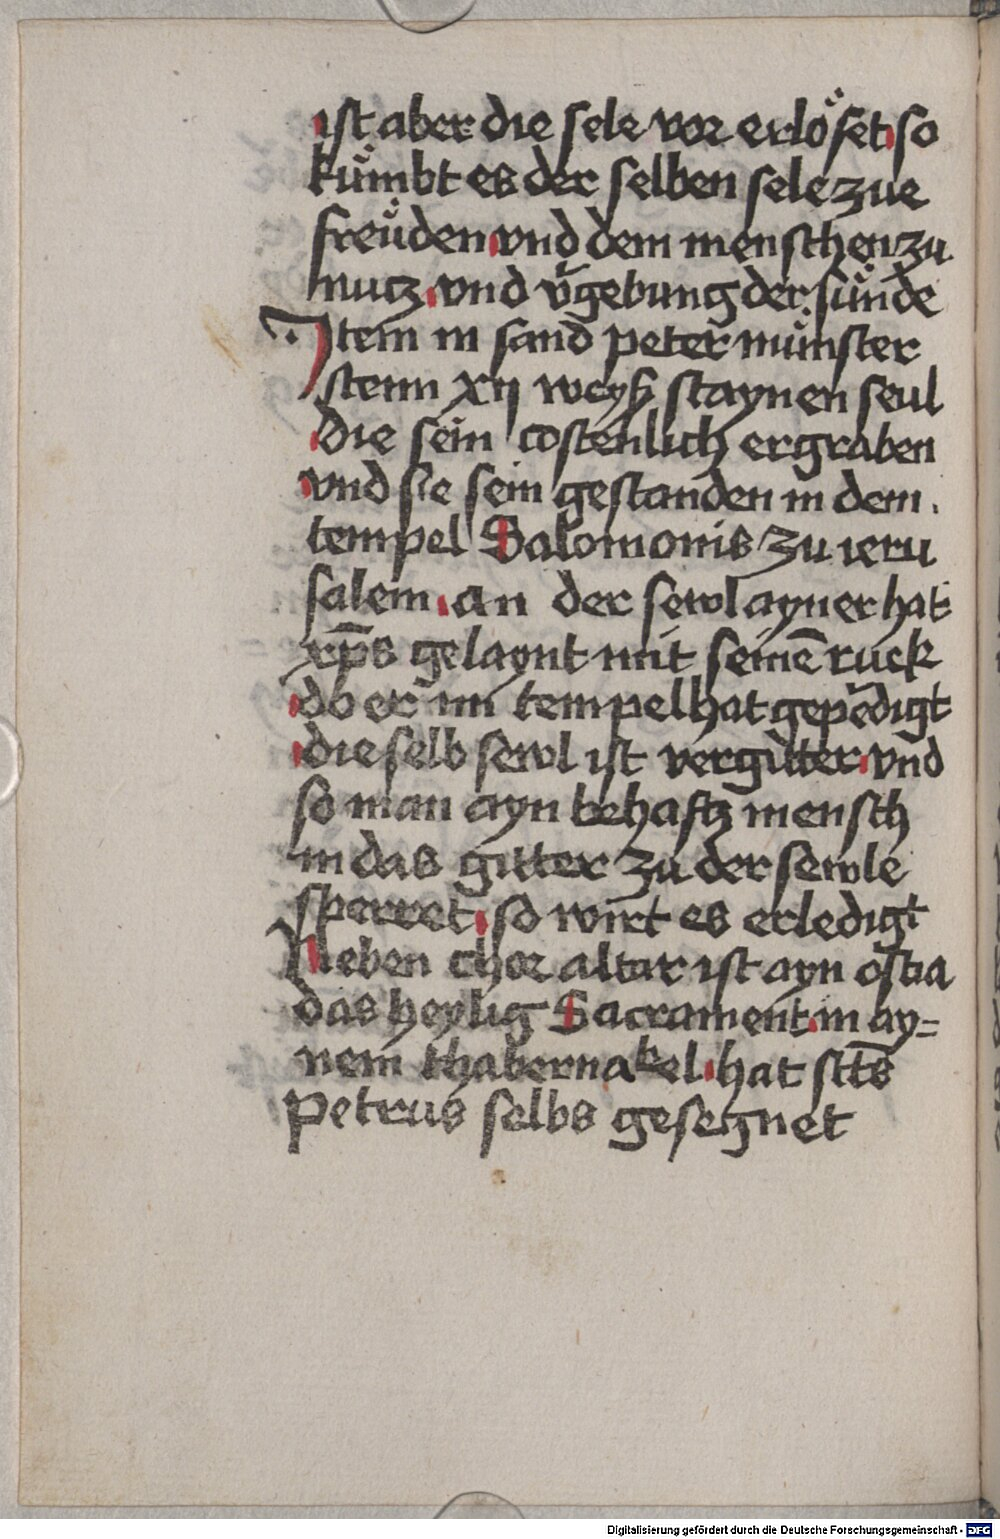 ist aber die sele vor erlöset so
kümbt es der selben sele zue
freüden vnd dem menschen zu
nutz vnd v̄gebung der sünde
Item in sand peter münster
stenn xij weyß staynen seul
die sein costenlich ergraben
vnd sie sein gestanden in dem
tempel Salomonis zu ieru
salem an der sewl ayner hat
xp̄s gelaynt mit seinē ruck
do er im tempel hat gep̄edigt
die selb sewl ist vergitter vnd
so man ayn behaftz mensch
in das gitter zu der sewle
sperret so wirt es erledigt
Neben chor altar ist ayn ostia
das heylig Sacrament in ay=
nem thabernakel hat sct̄s
Petrus selbs gesegnet
Digitalisierung gefördert durch die Deutsche Forschungsgemeinschaft - DFG